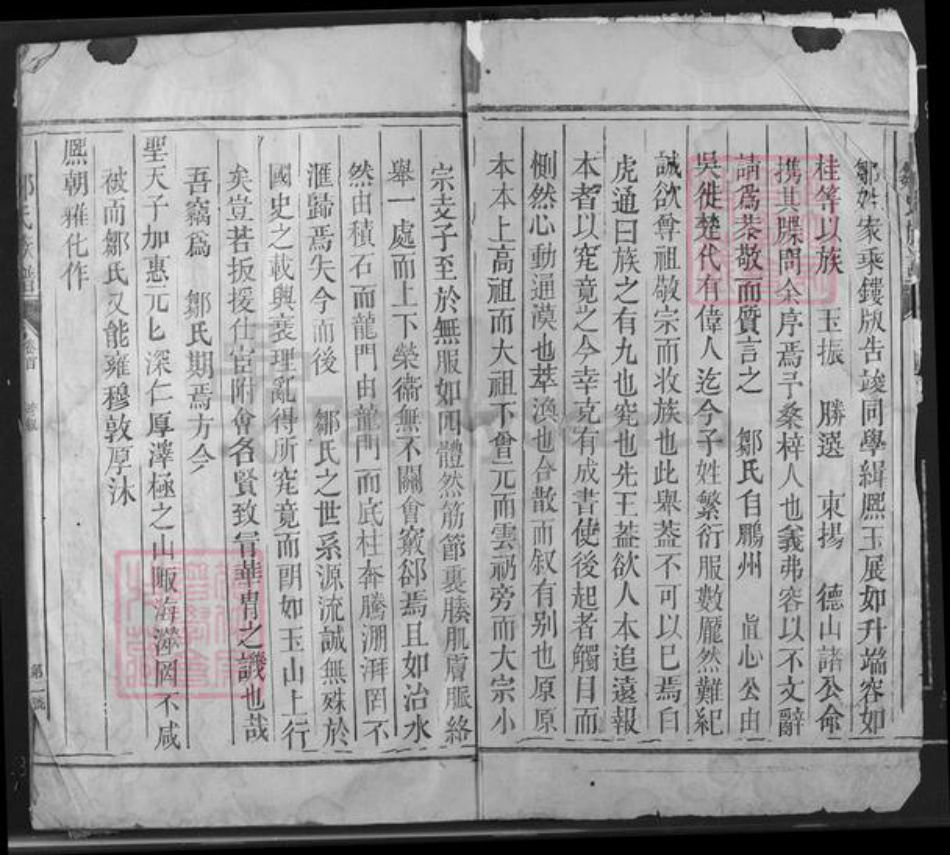 鄒姓家乘鏤版告竣同學緝熙玉展如升端容如
桂等以族 玉振 勝遠 東揚 德山諸公命
携其牒問余序焉予桑梓人也義弗容以不文辭
請爲恭敬而質言之 鄒氏自鵬州 眞心公由
吳徙楚代有偉人迄今子姓繁衍服數龎然難紀
誠欲尊祖敬宗而收族也此舉葢不可以已焉白
虎通曰族之有九也究也先王葢欲人本追遠報
本者以究竟之今幸克有成書使後起者觸目而
惻然心動通漠也萃渙也合散而叙有别也原原
本本上高祖而大祖下曾元而雲礽旁而大宗小
宗支子至於無服如四體然筋節裏腠肌膚脈絡
舉一處而上下榮衞無不關會窾郤焉且如治水
然由積石而龍門由龍門而底柱奔騰湖湃罔不
滙歸焉失今而後 鄒氏之世系源流誠無殊於
國史之載興衰理亂得所究竟而朗如玉山上行
矣豈若扳援仕宦附會各賢致冐華胄之譏也哉
吾竊爲 鄒氏期焉方今
聖天子加惠元匕深仁厚澤極之山陬海澨罔不咸
被而鄒氏又能雍穆敦厚沐
熈朝雅化作
鄒氏族譜 卷首
第一號